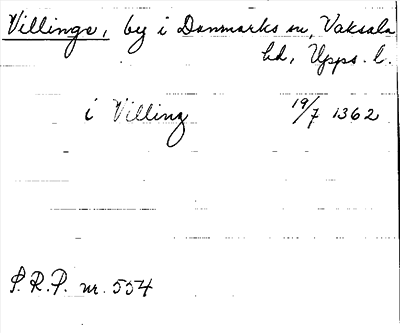 Villinge, by i Danmarks sn, Vaksala
hd, Upps. l.
i Villing 19/7 1362
P.R.P. nr. 554